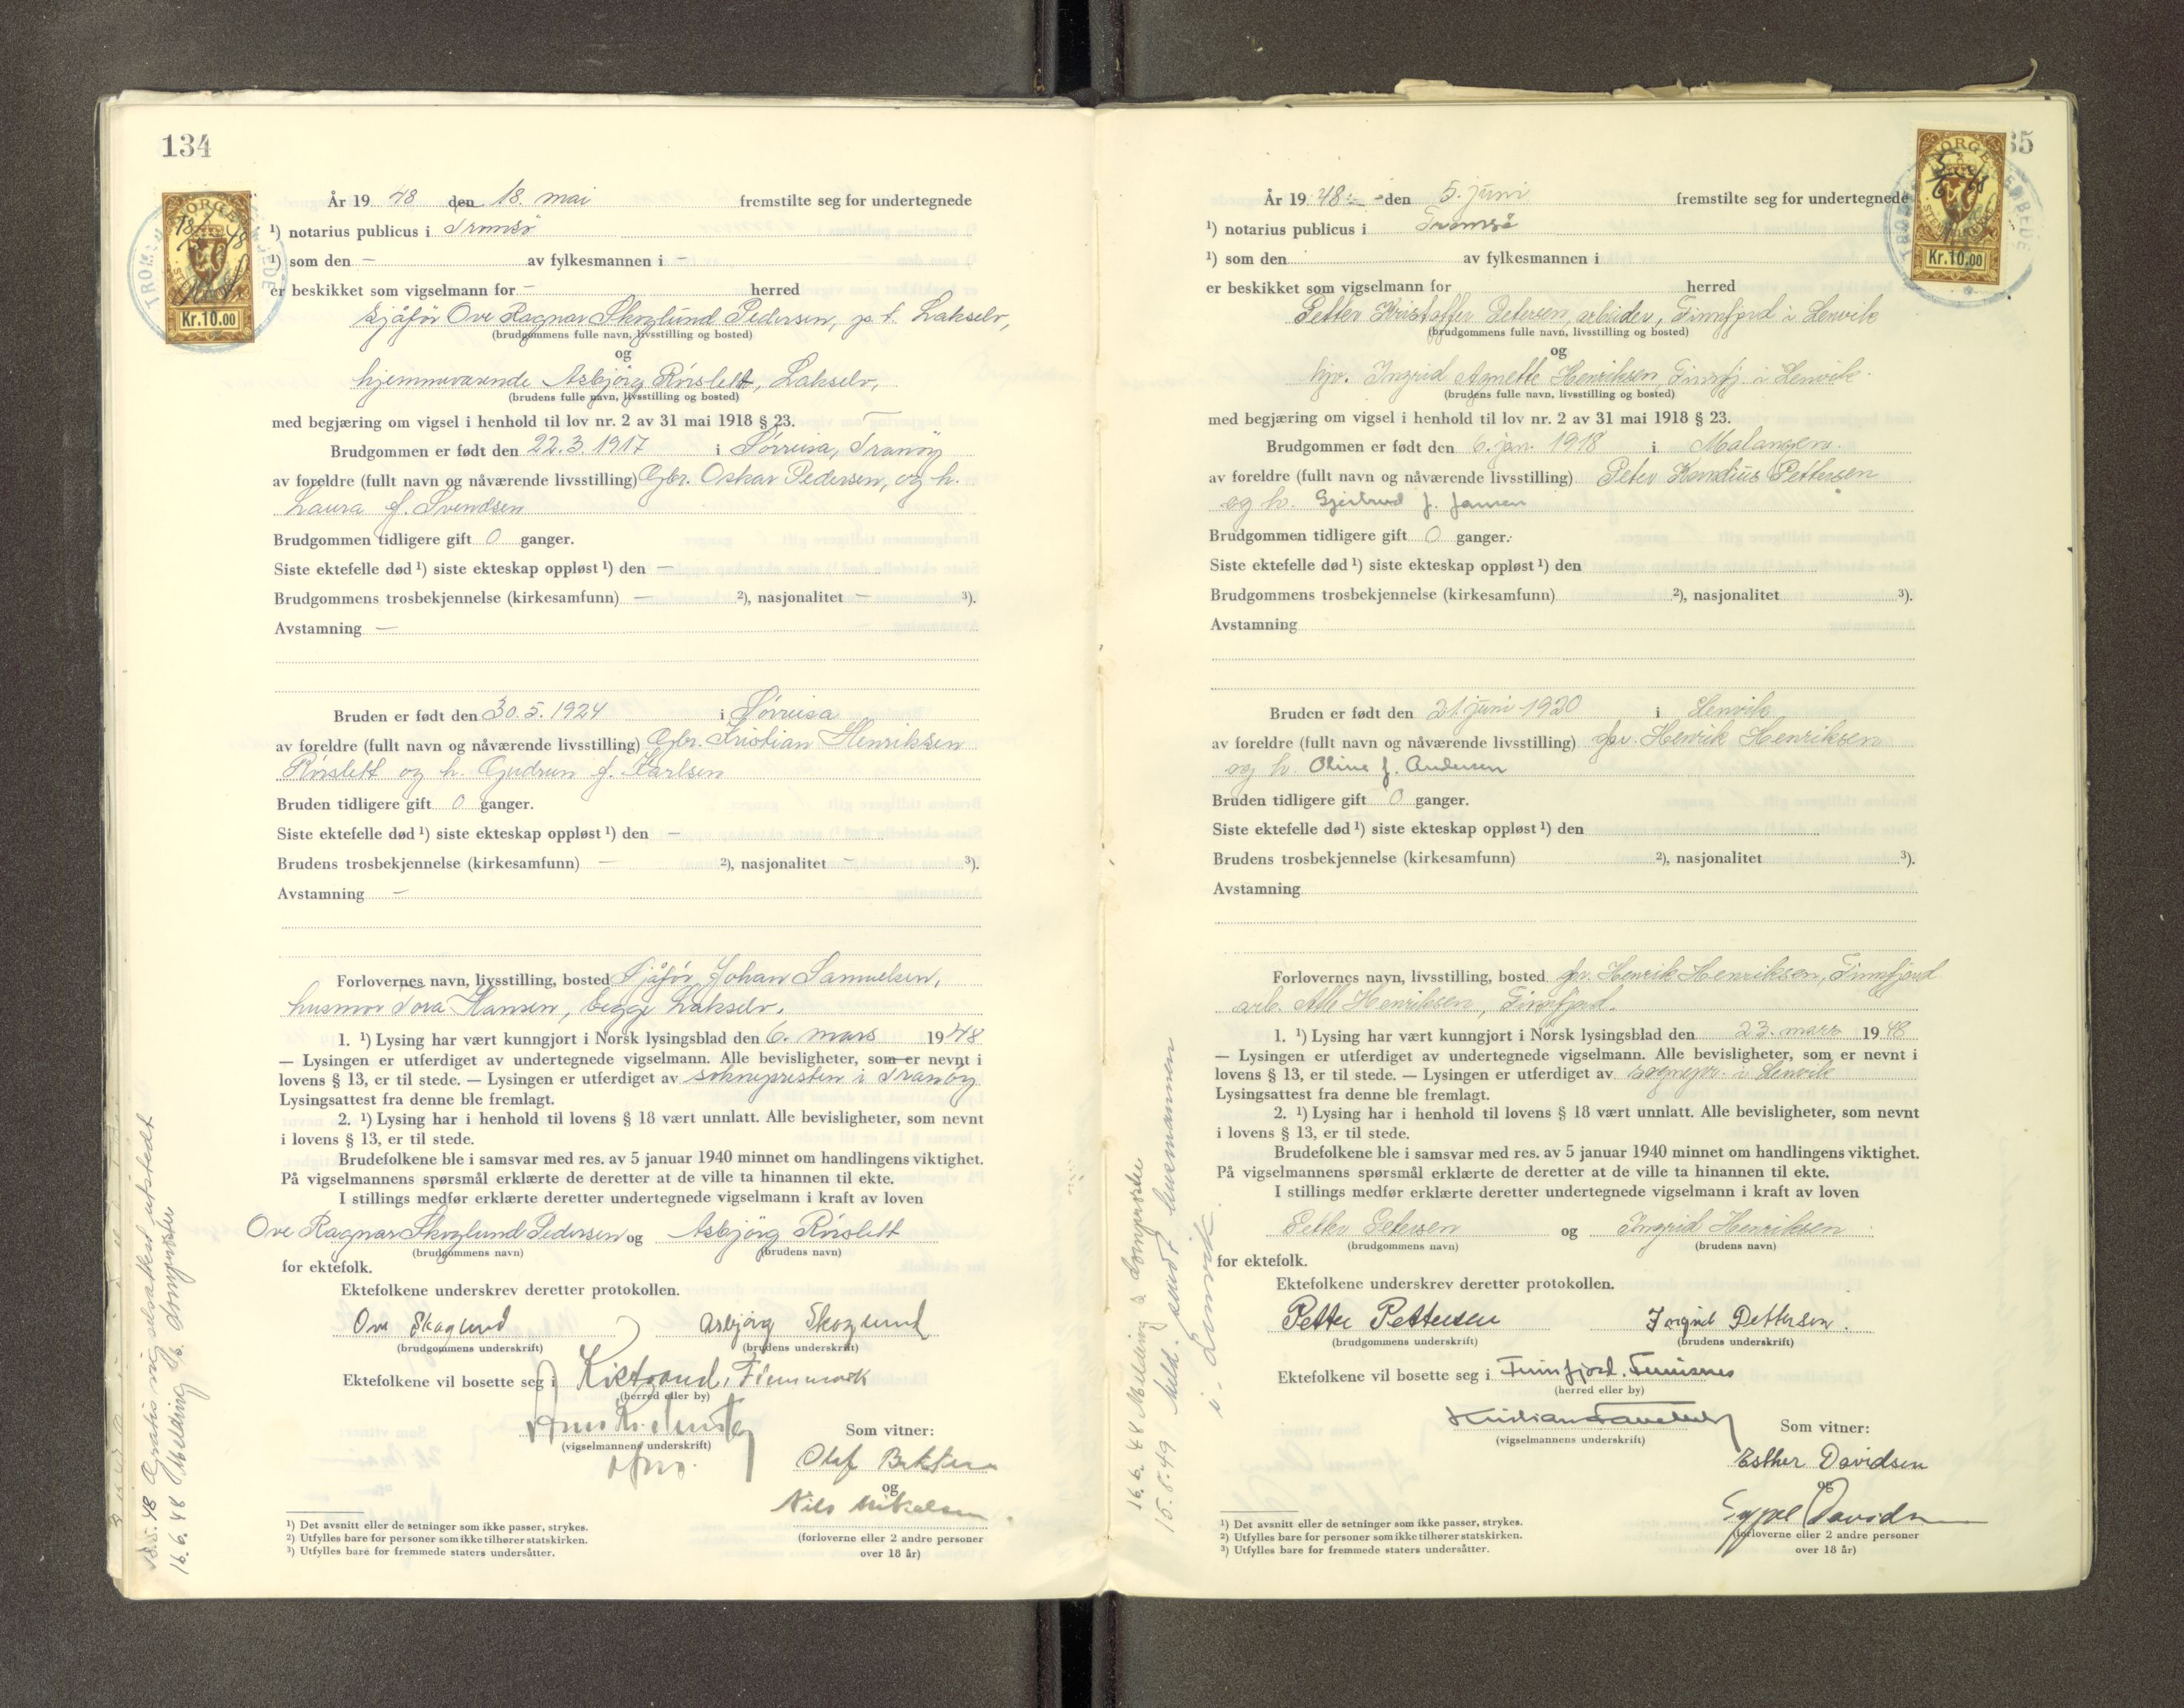 134
NORGE
Kr.10.00
År 19 48 den 18. mai fremstilte seg for undertegnede
¹) notarius publicus i Tromsö
¹) som den — av fylkesmannen i —
er beskikket som vigselmann for — herred
sjåför Ove Ragnar Skoglund Pedersen, p.t. Lakselv,
(brudgommens fulle navn, livsstilling og bosted)
og
hjemmeværende Asbjörg Rörslett, Lakselv,
(brudens fulle navn, livsstilling og bosted)
med begjæring om vigsel i henhold til lov nr. 2 av 31 mai 1918 § 23.
Brudgommen er født den 22.3.1917 i Sörreisa, Tranöy
av foreldre (fullt navn og nåværende livsstilling) Gbr. Oskar Pedersen, og h.
Laura f. Svendsen
Brudgommen tidligere gift 0 ganger.
Siste ektefelle død ¹) siste ekteskap oppløst ¹) den —
Brudgommens trosbekjennelse (kirkesamfunn) — ²), nasjonalitet — ³).
Avstamning —
Bruden er født den 30.5.1924 i Sörreisa
av foreldre (fullt navn og nåværende livsstilling) Gbr. Kristian Henriksen
Rörslett og h. Gudrun f. Karlsen
Bruden tidligere gift 0 ganger.
Siste ektefelle død ¹) siste ekteskap oppløst ¹) den —
Brudens trosbekjennelse (kirkesamfunn) — ²), nasjonalitet — ³).
Avstamning —
Forlovernes navn, livsstilling, bosted Sjåför Johan Samuelsen,
husmor Tora Hansen, begge Lakselv.
1. ¹) Lysing har vært kunngjort i Norsk lysingsblad den 6. mars 1948
— Lysingen er utferdiget av undertegnede vigselmann. Alle bevisligheter, som er nevnt i
lovens § 13, er til stede. — Lysingen er utferdiget av soknepresten i Tranöy
Lysingsattest fra denne ble fremlagt.
2. ¹) Lysing har i henhold til lovens § 18 vært unnlatt. Alle bevisligheter, som nevnt
i lovens § 13, er til stede.
Brudefolkene ble i samsvar med res. av 5 januar 1940 minnet om handlingens viktighet.
På vigselmannens spørsmål erklærte de deretter at de ville ta hinannen til ekte.
I stillings medfør erklærte deretter undertegnede vigselmann i kraft av loven
Ove Ragnar Skoglund Pedersen og Asbjörg Rörslett
(brudgommens navn) (brudens navn)
for ektefolk.
Ektefolkene underskrev deretter protokollen.
Ove Skoglund Asbjörg Skoglund
(brudgommens underskrift) (brudens underskrift)
Ektefolkene vil bosette seg i Kistrand, Finnmark
(herred eller by)
(vigselmannens underskrift)
Som vitner:
Olaf
og
Nils Mikalsen
(forloverne eller 2 andre personer
over 18 år)
¹) Det avsnitt eller de setninger som ikke passer, strykes.
²) Utfylles bare for personer som ikke tilhører statskirken.
³) Utfylles bare for fremmede staters undersåtter.
18.5.48 Gratis vigselsattest utstedt
16.6.48 Melding t. sorenpresten
35
NORGE
Kr.10.00
År 19 48 den 5. juni fremstilte seg for undertegnede
¹) notarius publicus i Tromsö
¹) som den av fylkesmannen i
er beskikket som vigselmann for herred
Petter Kristoffer Petersen, arbeider, Finnfjord i Lenvik
(brudgommens fulle navn, livsstilling og bosted)
og
hjv. Ingrid Agnette Henriksen, Finnfj. i Lenvik.
(brudens fulle navn, livsstilling og bosted)
med begjæring om vigsel i henhold til lov nr. 2 av 31 mai 1918 § 23.
Brudgommen er født den 6. jan. 1918 i Malangen.
av foreldre (fullt navn og nåværende livsstilling) Peter Kornelius Pettersen
og h. Gjertrud f. Jansen
Brudgommen tidligere gift 0 ganger.
Siste ektefelle død ¹) siste ekteskap oppløst ¹) den
Brudgommens trosbekjennelse (kirkesamfunn) ²), nasjonalitet ³).
Avstamning
Bruden er født den 21. juni 1920 i Lenvik
av foreldre (fullt navn og nåværende livsstilling) gbr. Henrik Henriksen
og h. Oline f. Andersen
Bruden tidligere gift 0 ganger.
Siste ektefelle død ¹) siste ekteskap oppløst ¹) den
Brudens trosbekjennelse (kirkesamfunn) ²), nasjonalitet ³).
Avstamning
Forlovernes navn, livsstilling, bosted gbr. Henrik Henriksen, Finnfjord
arb. Alb. Henriksen, Finnfjord.
1. ¹) Lysing har vært kunngjort i Norsk lysingsblad den 23. mars 1948
— Lysingen er utferdiget av undertegnede vigselmann. Alle bevisligheter, som er nevnt i
lovens § 13, er til stede. — Lysingen er utferdiget av sognepr. i Lenvik
Lysingsattest fra denne ble fremlagt.
2. ¹) Lysing har i henhold til lovens § 18 vært unnlatt. Alle bevisligheter, som nevnt
i lovens § 13, er til stede.
Brudefolkene ble i samsvar med res. av 5 januar 1940 minnet om handlingens viktighet.
På vigselmannens spørsmål erklærte de deretter at de ville ta hinannen til ekte.
I stillings medfør erklærte deretter undertegnede vigselmann i kraft av loven
Petter Petersen og Ingrid Henriksen
(brudgommens navn) (brudens navn)
for ektefolk.
Ektefolkene underskrev deretter protokollen.
Petter Pettersen Ingrid Pettersen.
(brudgommens underskrift) (brudens underskrift)
Ektefolkene vil bosette seg i Finnfjord. Finnsnes
(herred eller by)
(vigselmannens underskrift)
Som vitner:
Esther Davidsen
og
Davidsen
(forloverne eller 2 andre personer
over 18 år)
¹) Det avsnitt eller de setninger som ikke passer, strykes.
²) Utfylles bare for personer som ikke tilhører statskirken.
³) Utfylles bare for fremmede staters undersåtter.
16.6.48 Melding t.
15.8.49 Meld. sendt lensmannen
i Lenvik.